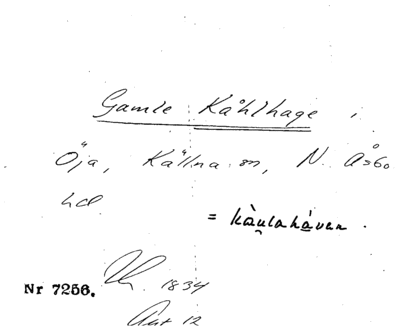 Gamle Kåhlhage,
Öja, Källna sn, N. Åsbo
hd
= kàu̯lahávan.
Nr 7256. 1834
Akt 12